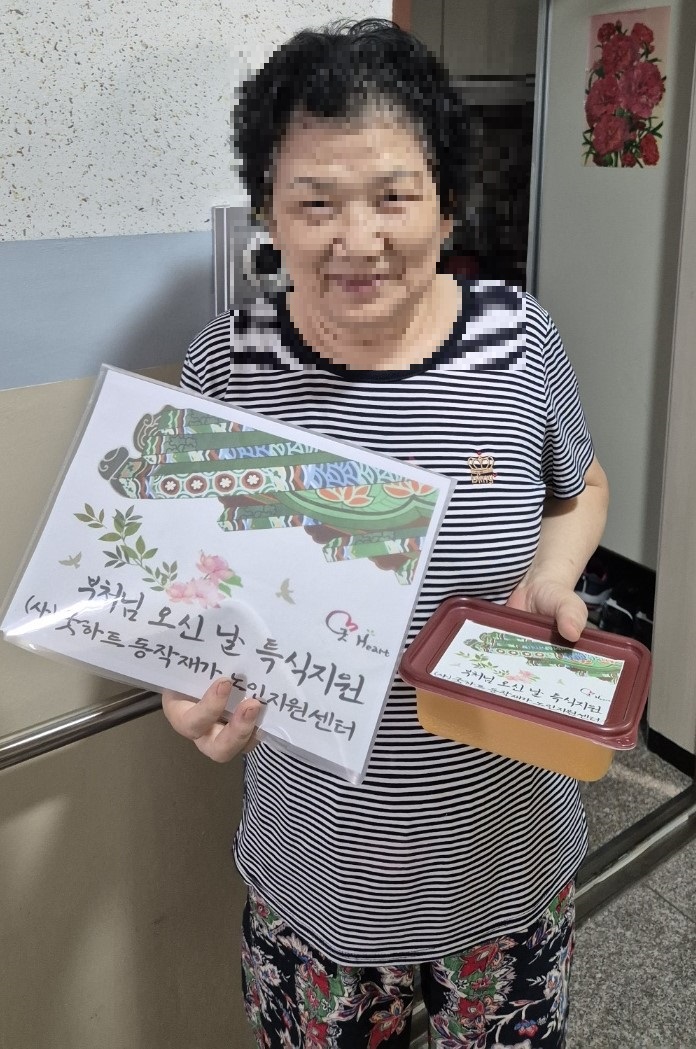 부처님 오신 날 특식지원
(사)굿하트 동작재가 노인지원센터
굿 Heart
부처님 오신 날 특식지원
(사)굿하트 동작재가 노인지원센터